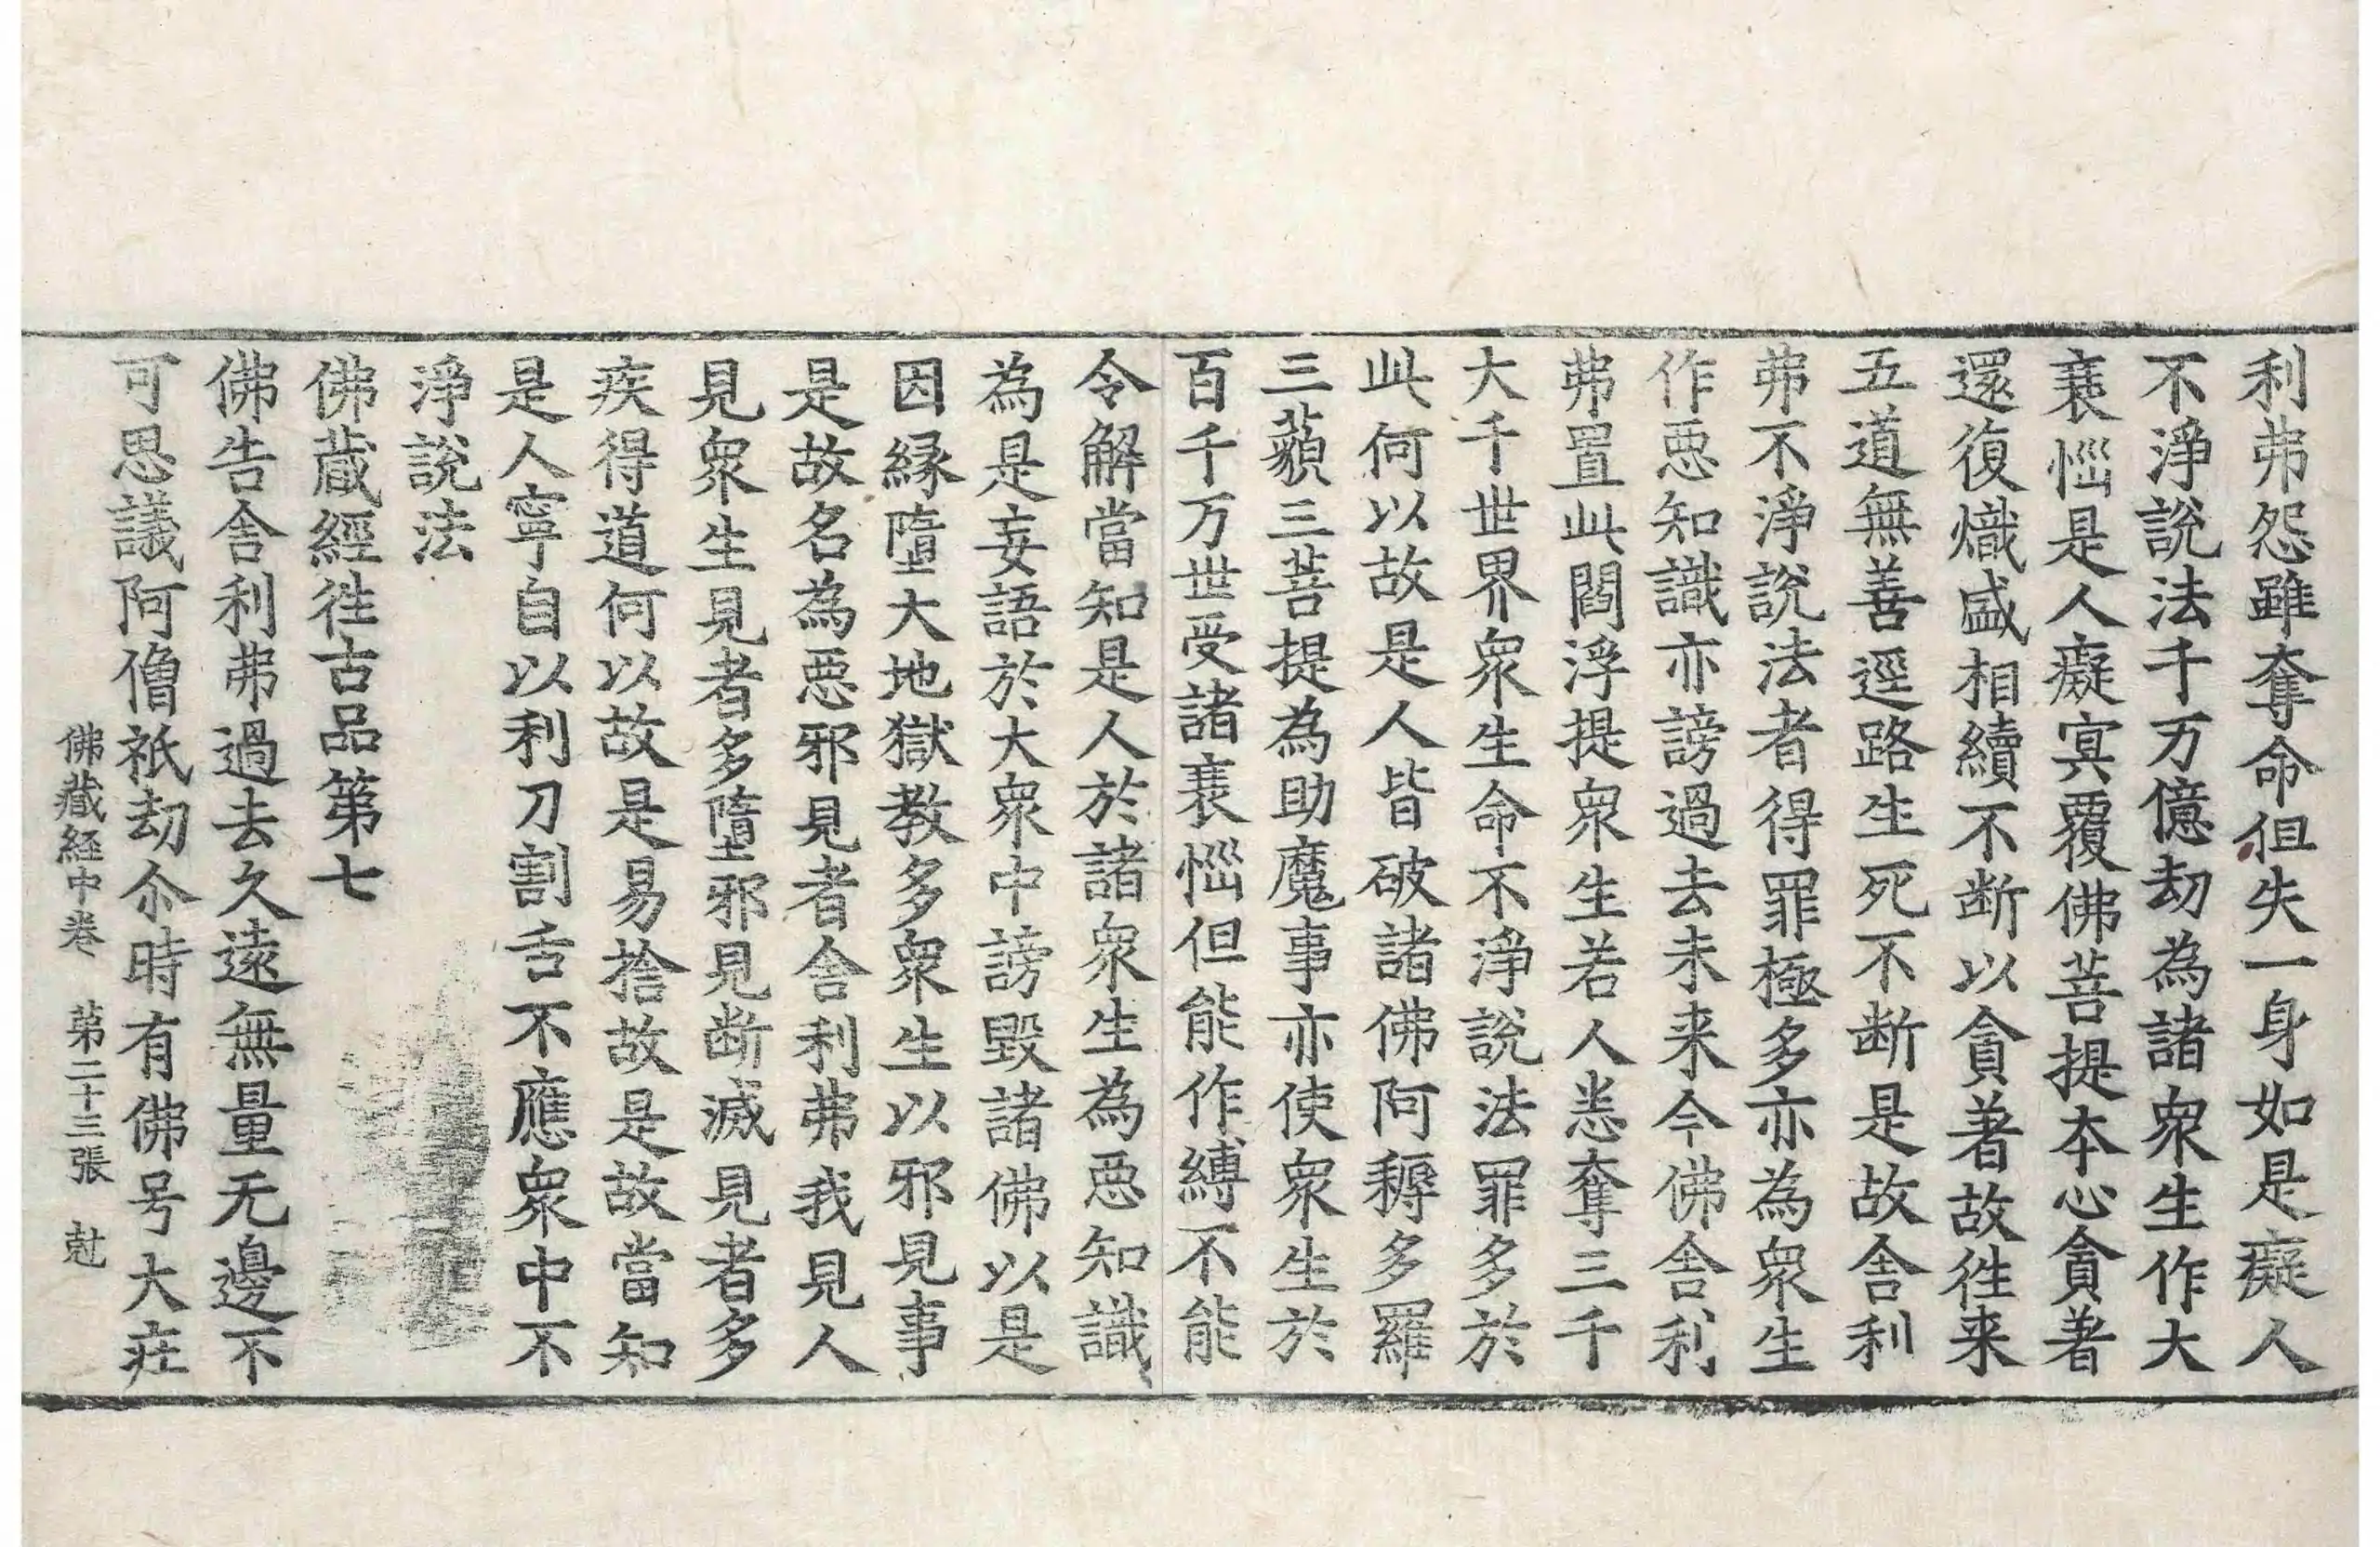 利弗怨雖奪命但失一身如是癡人
不淨說法千万億劫為諸衆生作大
衰惱是人癡冥覆佛菩提本心貪著
還復熾盛相續不断以貪著故徃来
五道無善逕路生死不断是故舍利
弗不淨說法者得罪極多亦為衆生
作惡知識亦謗過去未来今佛舍利
弗置此閻浮提衆生若人悉奪三千
大千世界衆生命不淨說法罪多於
此何以故是人皆破諸佛阿耨多羅
三藐三菩提為助魔事亦使衆生於
百千万世受諸衰惱但能作縛不能
令解當知是人於諸衆生為惡知識
為是妄語於大衆中謗毀諸佛以是
因緣墮大地獄教多衆生以邪見事
是故名為惡邪見者舍利弗我見人
見衆生見者多墮邪見断滅見者多
疾得道何以故是易捨故是故當知
是人寧自以利刀割舌不應衆中不
淨說法
佛蔵經徃古品第七
佛告舍利弗過去久遠無量无邊不
可思議阿僧祇劫尒時有佛号大庄
佛蔵経中巻　第二十三張　尅